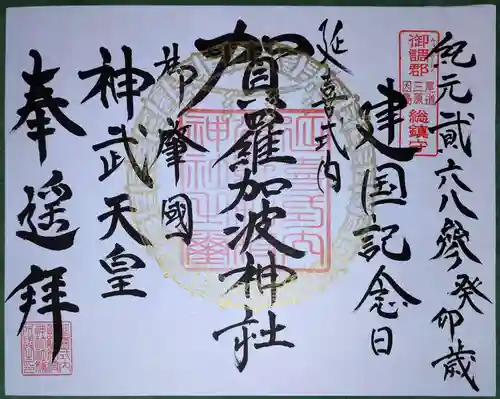 紀元貳六八參癸卯歳
御調郡
尾道
三原
因島
総鎮守
建国記念日
延喜式内
賀羅加波神社
肇國
神武天皇
奉遥拜